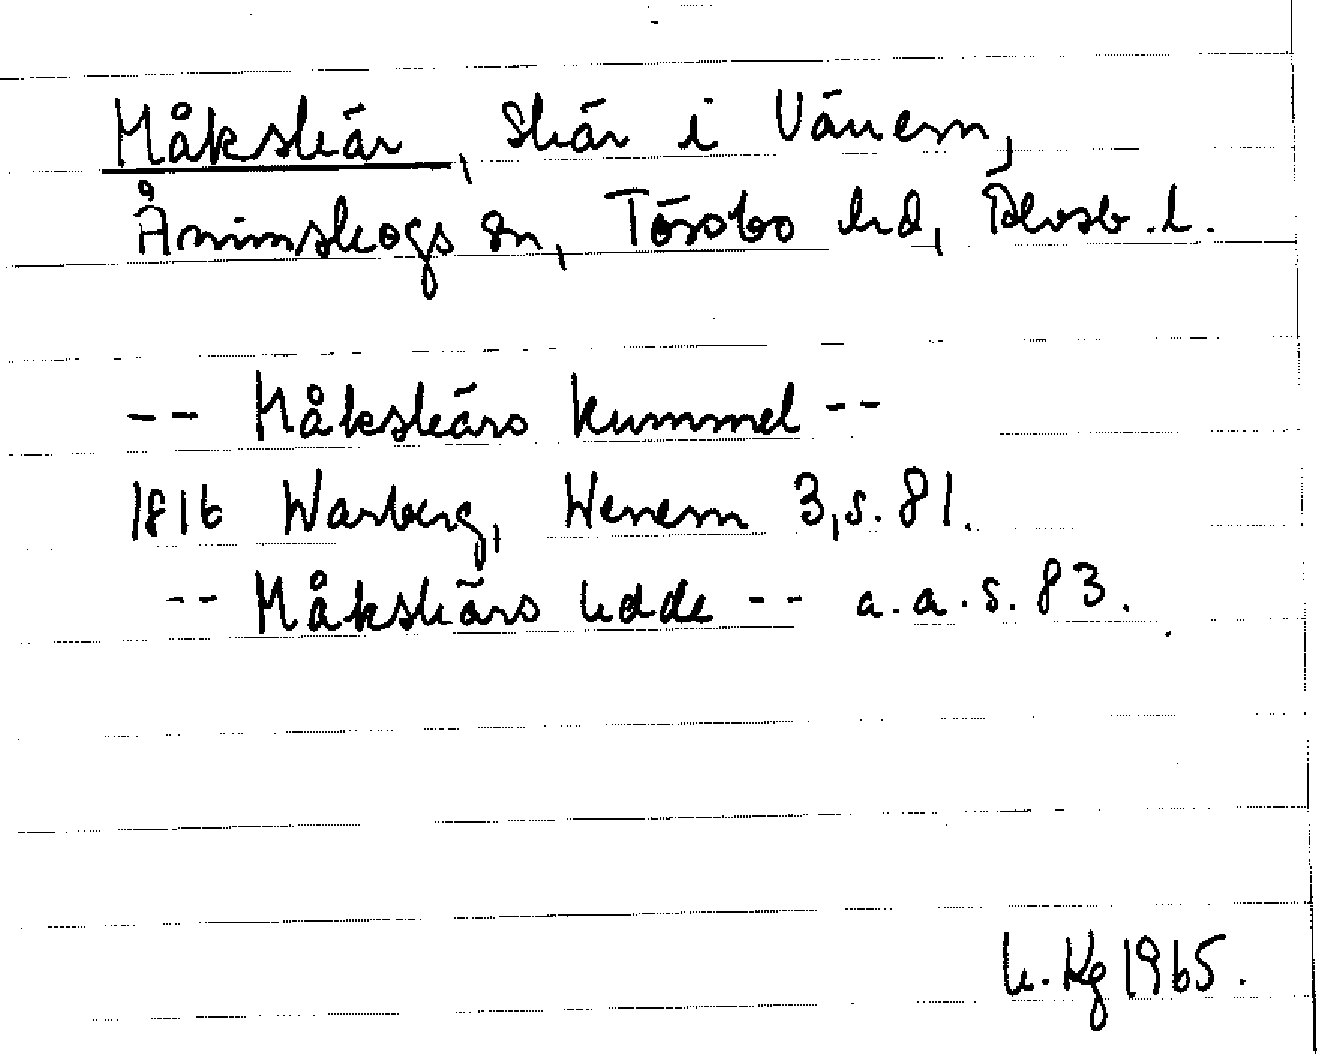 Måkskär, skär i Vänern,
Ånimskogs sn, Tössbo hd, Älvsb. l.
-- Måkskärs kummel --
1816 Warberg, Wenern 3, s. 81.
-- Måkskärs udde -- a.a. s. 83.
Kg 1965.